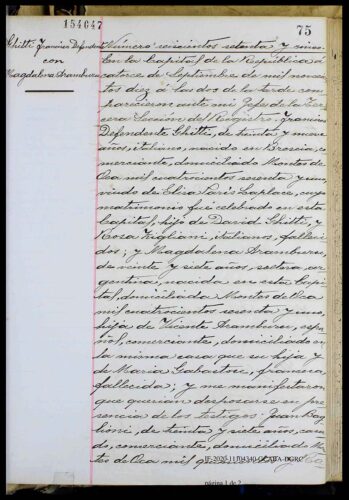 154647
75
Ghitti Francisco Defendente
con
Magdalena Aramburu
Número seiscientos setenta y cinco
En la Capital de la República a
catorce de Septiembre de mil nove
tos diez a las dos de la tarde com
parecieron ante mi Jefe de la Ter
cera Sección del Registro: Francisco
Defendente Ghitti, de treinta y
años, italiano, nacido en Brescia, co
merciante, domiciliado Montes de
Oca mil cuatrocientos sesenta y uno
viudo de Elisa Laplace, cuyo
matrimonio fué celebrado en esta
Capital, hijo de David Ghitti, y
Rosa italianos, falleci
dos; y Magdalena Aramburu,
de veinte y siete años, soltera, ar
gentina, nacida en esta Capi
tal, domiciliada Montes de Oca
mil cuatrocientos sesenta y uno,
hija de Vicente Aramburu, espa
ñol, comerciante, domiciliado en
la misma casa que su hija y
de Maria francesa
fallecida; y me manifestaron
que querian desposarse en pre
sencia de los testigos: Juan
lioni, de treinta y siete años, casa
do, comerciante, domiciliado Mon
tes de Oca mil
página 1 de 2